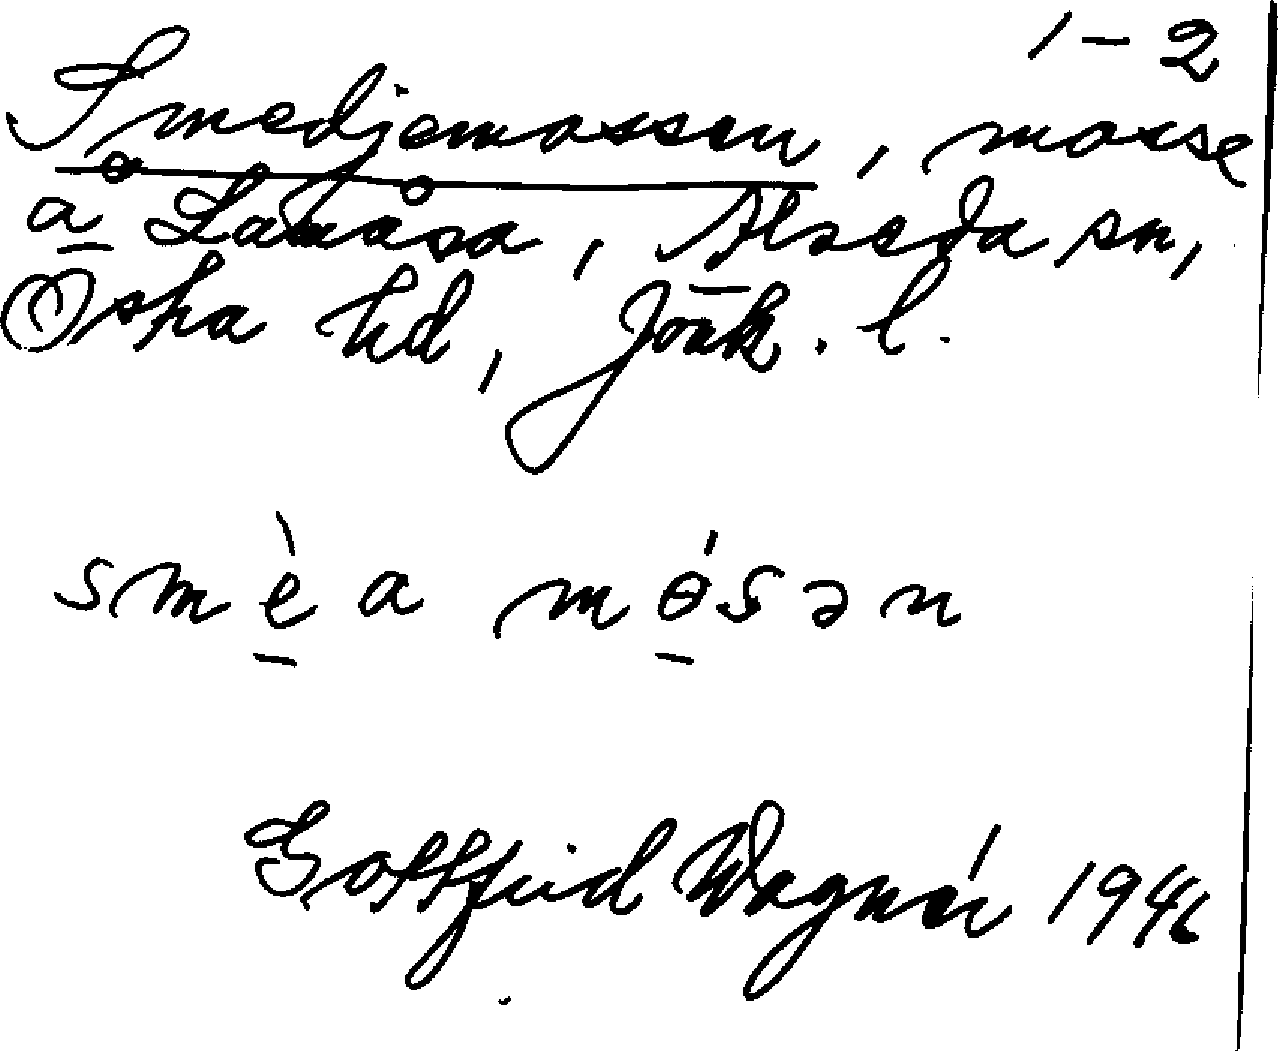 1-2
Smedjemossen, mosse
å Lakåsa, Alseda sn,
Östra hd, Jönk. l.
smèa mósən
Gottfrid Wagnér 1946